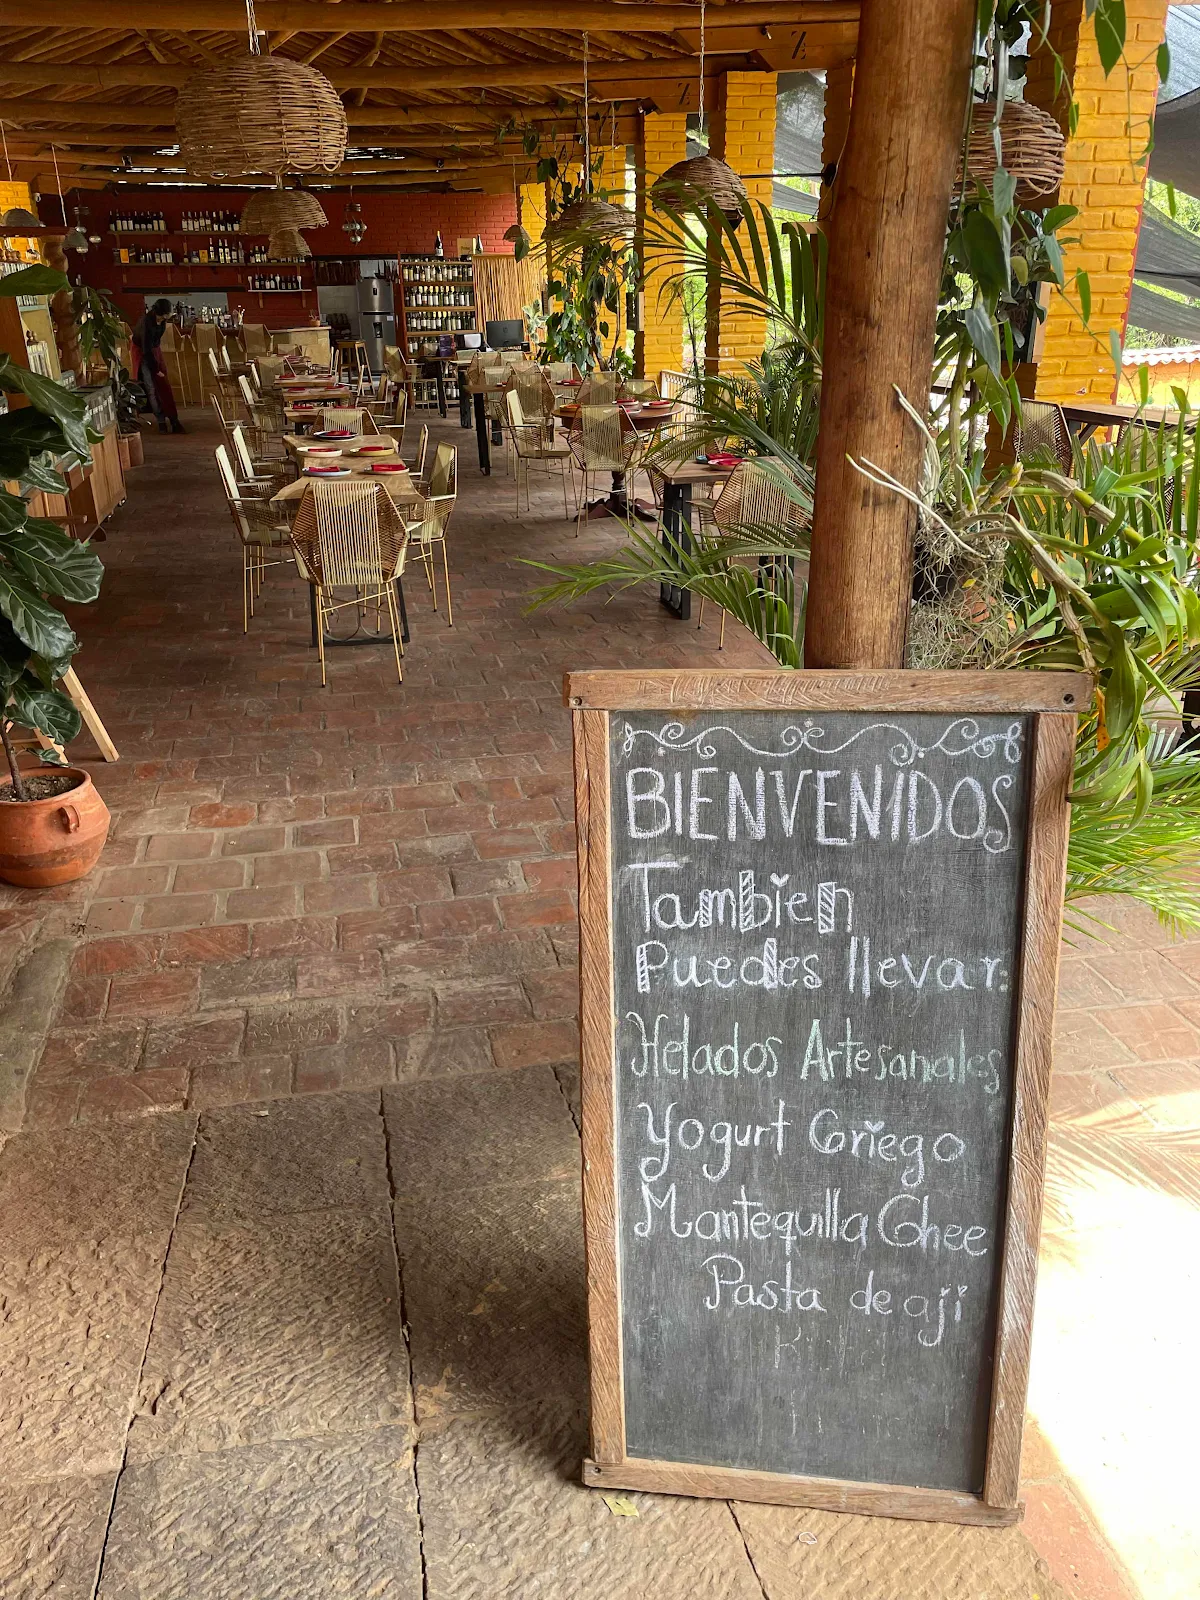 BIENVENIDOS
Tambien
Puedes llevar:
Helados Artesanales
Yogurt Griego
Mantequilla Ghee
Pasta de aji